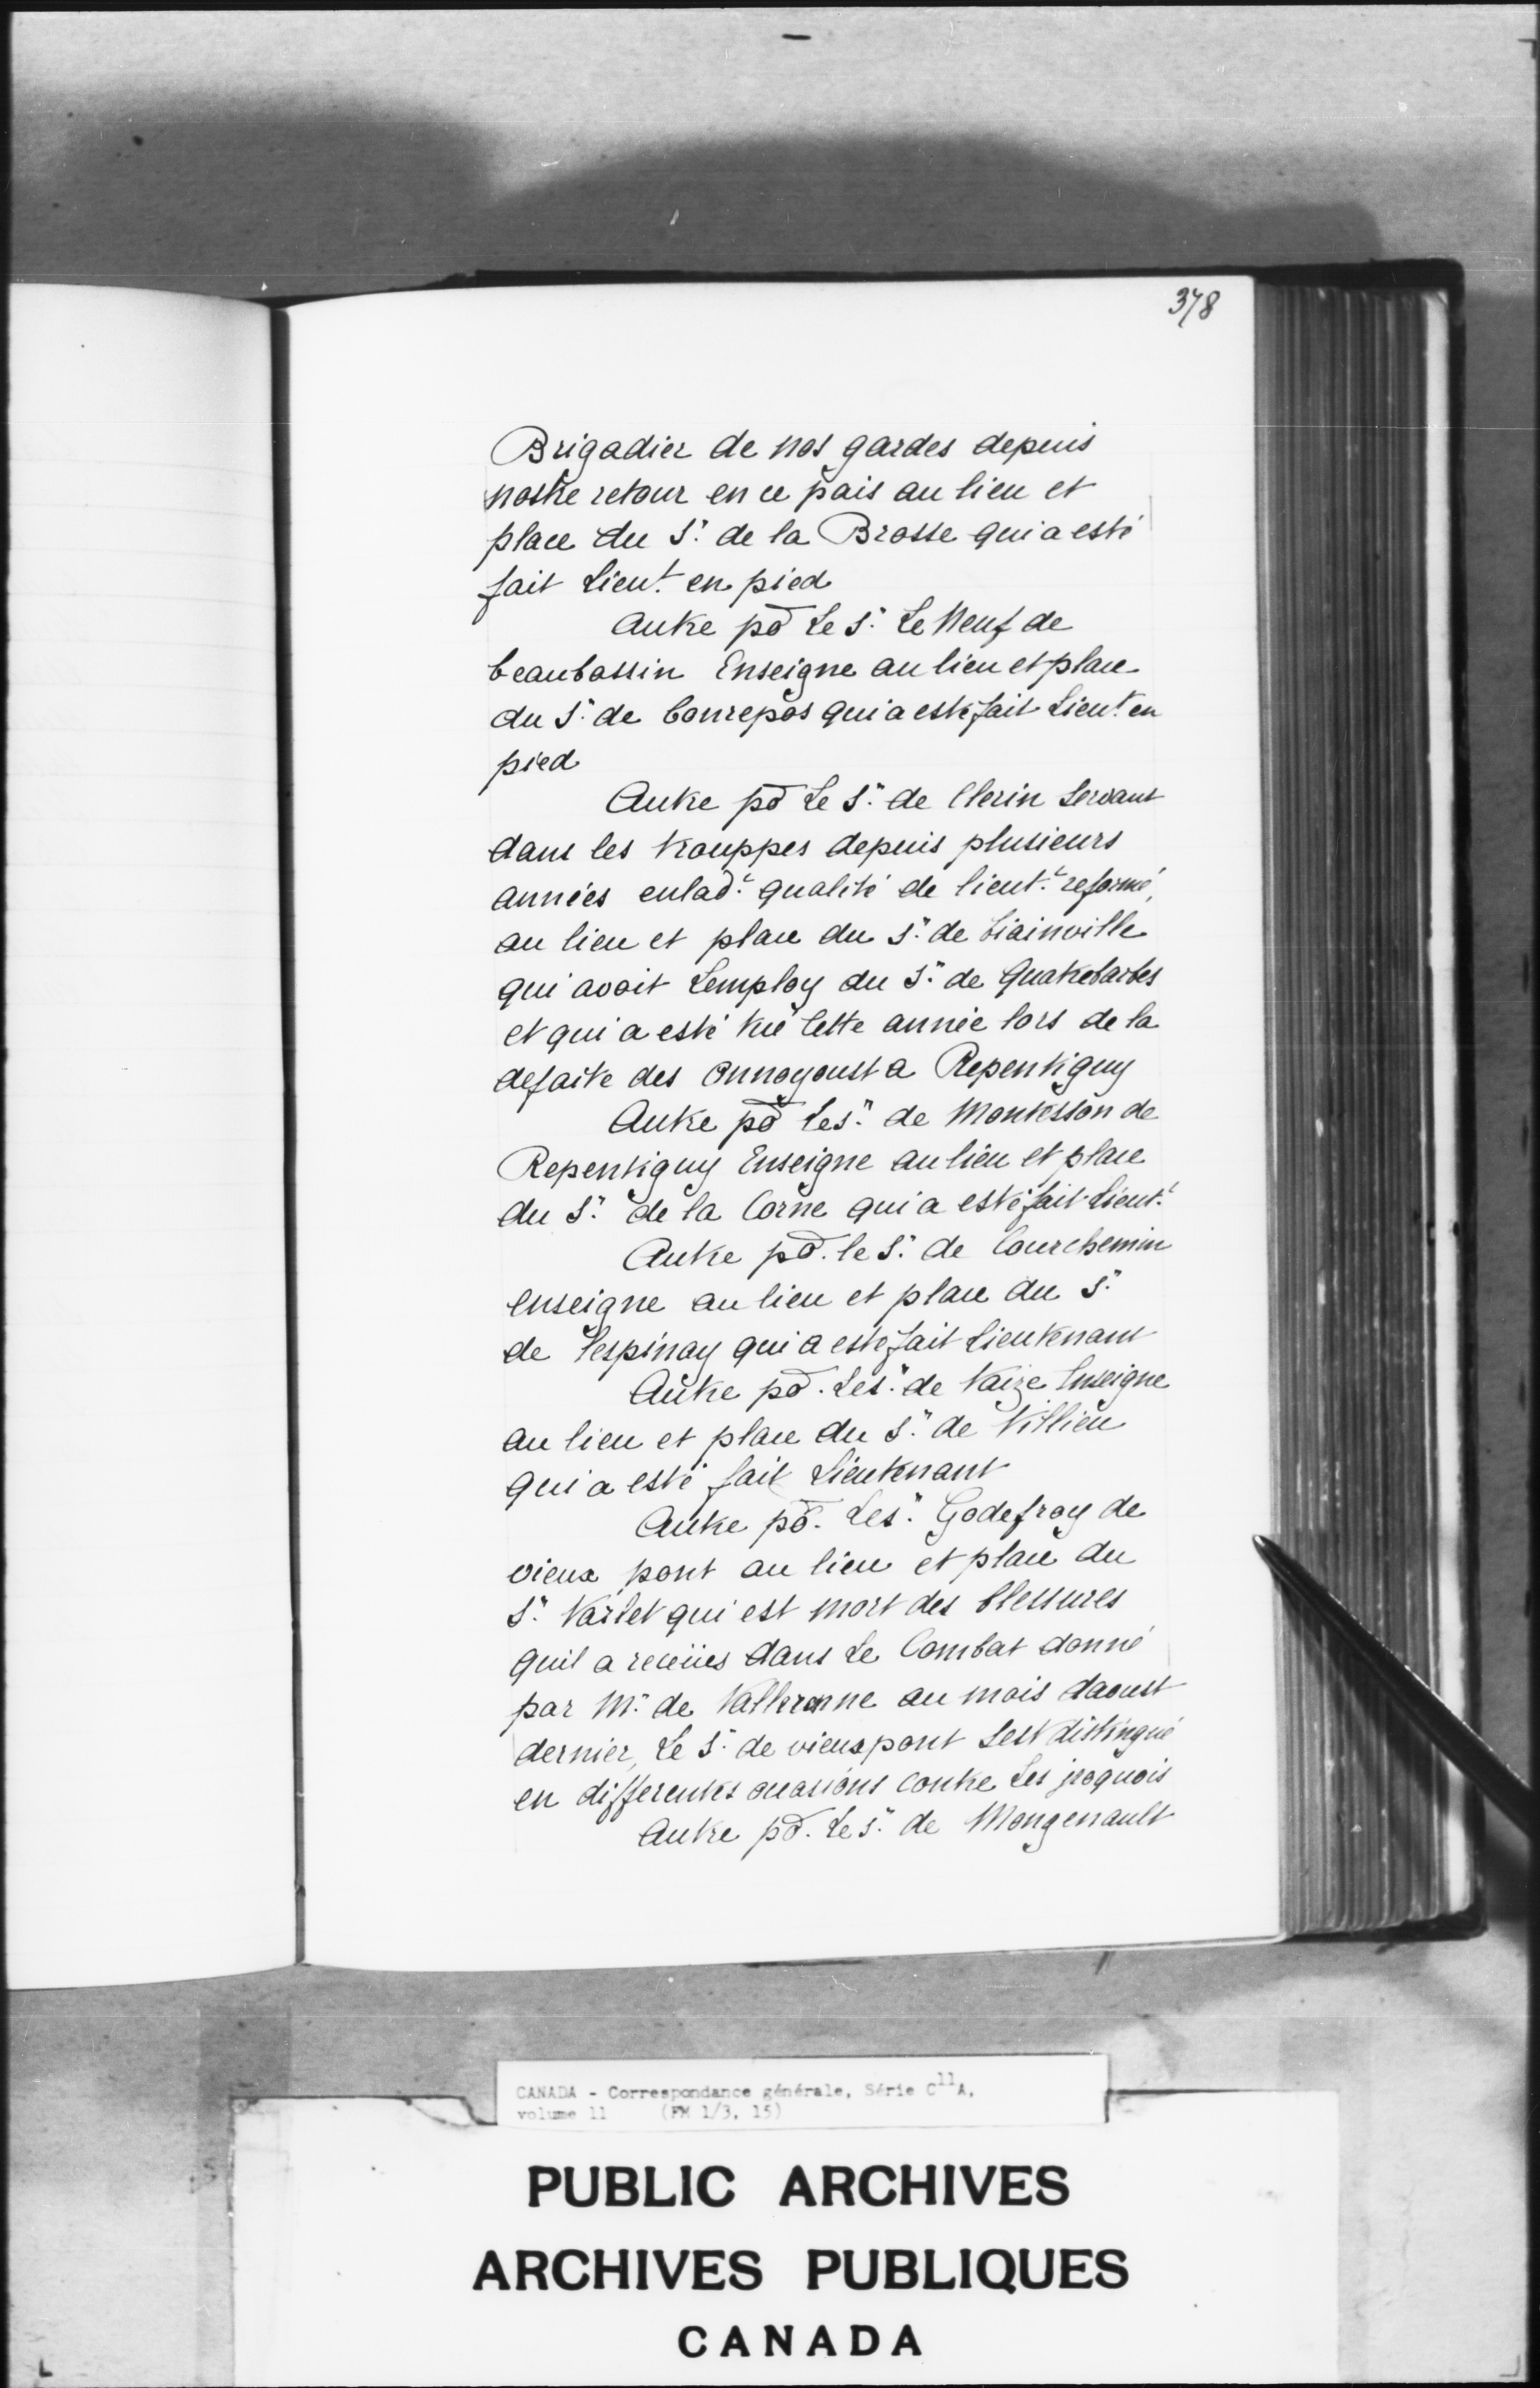 378
Brigadier de nos gardes depuis
nostre retour en ce païs au lieu et
place du Sr. de la Brosse qui a esté
fait Lieut. en pied
autre po Le Sr. Le Neuf de
beaubassin Enseigne au lieu et place
du Sr. de bonrepos qui a esté fait Lieut. en
pied
Autre po Le Sr. de Clerin servant
dans les trouppes depuis plusieurs
années enlad.e qualité de lieut.t reformé,
au lieu et place du Sr. de biainville
qui avoit Lemploy du Sr. de Quatrebarbes
et qui a esté tué Cette année lors de la
defaite des onnoyoust a Repentigny
Autre po Le Sr. de Montesson de
Repentigny Enseigne au lieu et place
du Sr. de la Corne qui a esté fait Lieut.t
Autre po. le Sr. de Courchemin
enseigne au lieu et place du Sr.
de Lespinay qui a esté fait Lieutenant
Autre po. Le Sr. de Vaize Enseigne
au lieu et place du Sr. de Villieu
qui a esté fait Lieutenant
Autre po. Le Sr. Godefroy de
vieux pont au lieu et place du
Sr. Varlet qui est mort des blessures
quil a receües dans Le Combat donné
par Mr. de Valleranne au mois daoust
dernier, Le Sr. de vieuxpont sest distingué
en differentes occasions contre Les jroquois
Autre po. Le Sr. de Mongenault
CANADA - Correspondance générale, Série C11A,
volume 11 (FM 1/3, 15)
PUBLIC ARCHIVES
ARCHIVES PUBLIQUES
CANADA